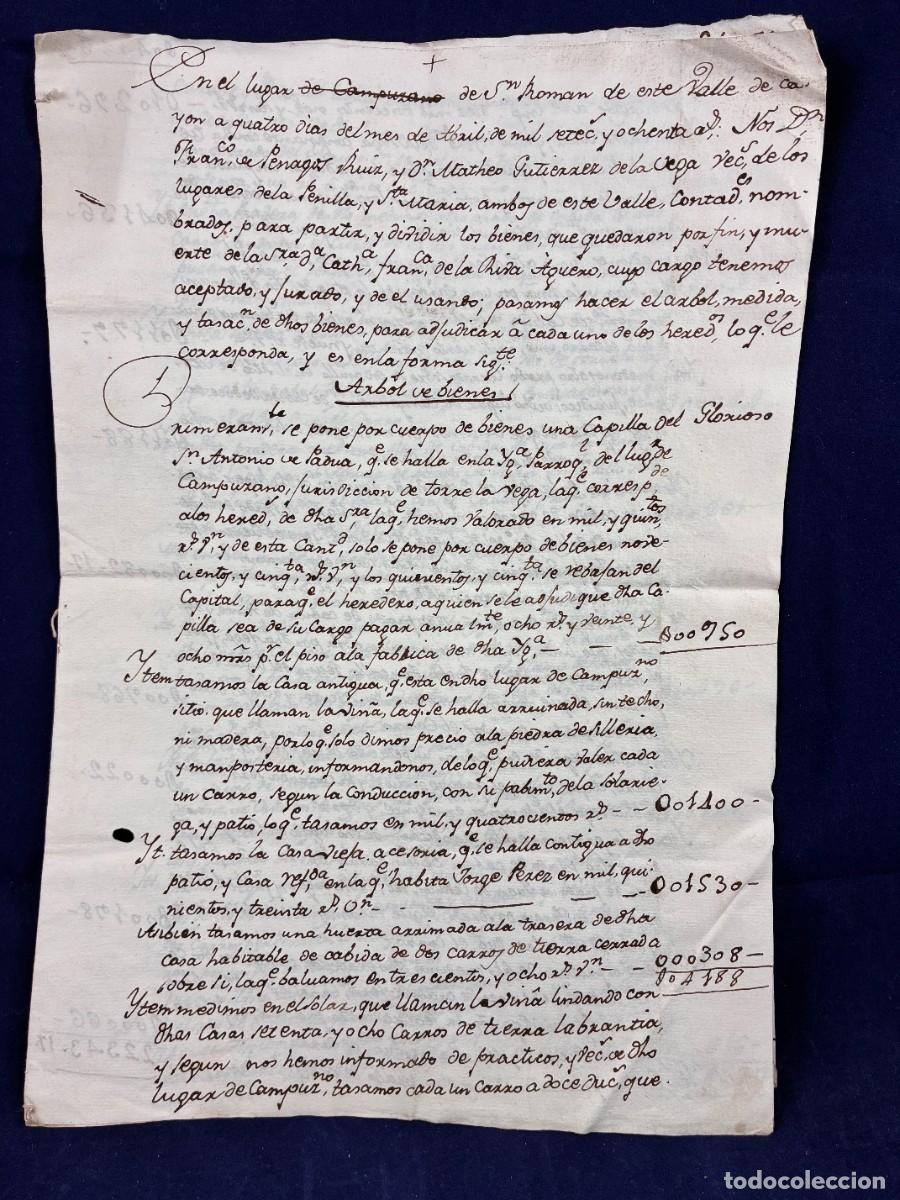 +
En el lugar de Campuzano de Sn Roman de este Valle de ca-
yon a quatro dias del mes de Abril, de mil setecs, y ochenta as. Nos Dn
Franco de Penagos Ruiz, y Dn Matheo Gutierrez de la Vega Vecs, de los
lugares de la Penilla, y Sta Maria, ambos de este Valle, Contades nom-
brados, para partir, y dividir los bienes, que quedaron por fin, y mu-
erte de la Sra da Catha, franca de la Riva Aguero, cuyo cargo tenemos
aceptado, y Jurado, y de el usando; pasamos hacer el arbol, medida,
y tasacn, de dhos bienes, para adjudicar a cada uno de los heredos lo qe le
corresponda, y es en la forma sigte:
Arbol de bienes
rimeramte, se pone por cuerpo de bienes una Capilla del Glorioso
Sn Antonio de Padua, qe se halla en la Yga Parroql, del lugr de
Campuzano, Jurisdiccion de torre la Vega, la qe correspde
a los hereds, de dha Sra, la qe hemos Valorado en mil, y quintos
rs. Vn, y de esta Cantd, solo se pone por cuerpo de bienes nove-
cientos, y cinqta rs. Vn, y los quinientos, y cinqta se rebajan del
Capital, para qe el heredero, a quien se le adjudique dha Ca-
pilla sea de su Cargo pagar anualmte, ocho rs. y veinte, y
ocho mrs pr. el piso a la fabrica de dha Yga, — — 000950
Ytem tasamos la Casa antigua, qe esta en dho lugar de Campuzno,
sitio que llaman la Viña, la qe se halla arruinada, sin techo,
ni madera, por lo qe solo dimos precio a la piedra de silleria,
y manposteria, informandonos, de lo qe pudiera valer cada
un Carro, segun la Conduccion, con su pabimto, de la solarie-
ga, y patio, lo qe tasamos en mil, y quatrocientos rs. — 001400-
Yt. tasamos la Casa vieja acesoria, qe se halla contigua a dho
patio, y Casa Refda en la qe habita Jorge Perez en mil, qui-
nientos, y treinta rs. Vn — — — 001530-
Asibien tasamos una huerta arrimada a la trasera de dha
casa habitable de cabida de dos carros de tierra cerrada
sobre si, la qe baluamos en trescientos, y ocho rs. Vn — 000308-
004188
Ytem medimos en el Solar, que llaman la Viña lindando con
dhas Casas setenta, y ocho Carros de tierra labrantia,
y segun nos hemos informado de practicos, y vecs, de dho
lugar de Campuzno, tasamos cada un Carro a doce ducs, que
todocoleccion